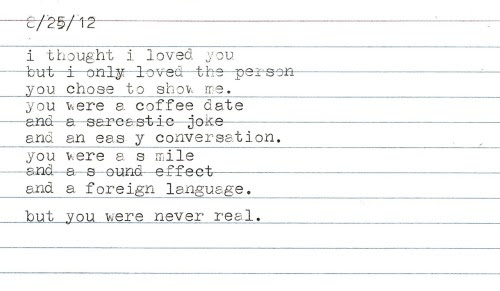 8/25/12
i thought i loved you
but i only loved the person
you chose to show me.
you were a coffee date
and a sarcastic joke
and an eas y conversation.
you were a s mile
and a s ound effect
and a foreign language.
but you were never real.